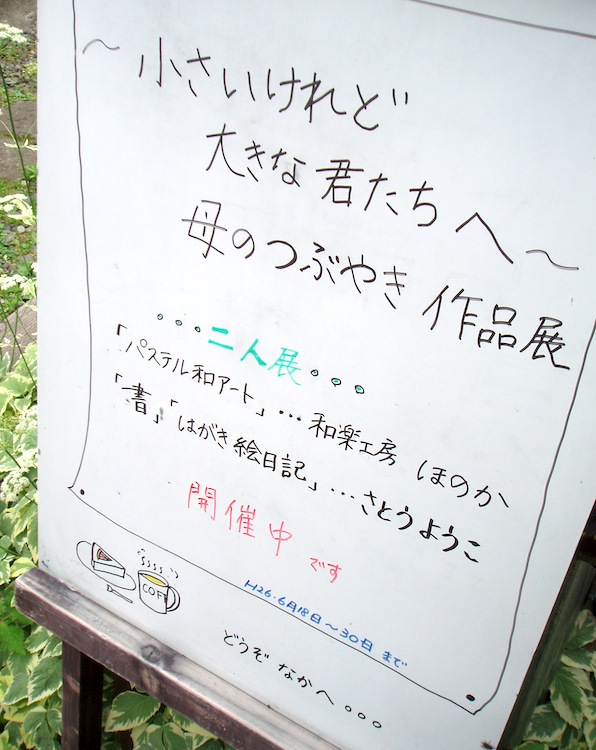 ～小さいけれど
大きな君たちへ～
母のつぶやき 作品展
・・・二人展・・・
「パステル和アート」・・・和楽工房 ほのか
「書」「はがき絵日記」・・・さとうようこ
開催中です
COFF
H26.6月18日～30日 まで
どうぞ なかへ。。。